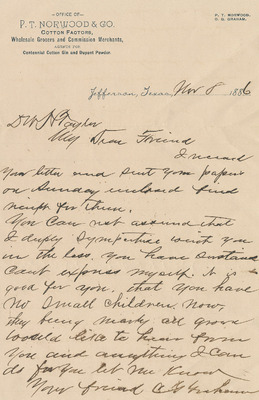 OFFICE OF
P. T. NORWOOD & CO.
COTTON FACTORS,
Wholesale Grocers and Commission Merchants,
AGENTS FOR
Centennial Cotton Gin and Dupont Powder.
P. T. NORWOOD.
C. G. GRAHAM.
Jefferson, Texas, Nov 8 1886
Taylor
My Dear Friend
I
Your letter and sent your papers
on Sunday inclosed find
recipt for them.
You can rest assured that
I deeply sympathise with you
in the loss you have sustained
Cant express myself. it is
good for you, that you have
No small children now,
they being nearly all grown
would like to hear from
you and anything I can
do for you let me know
Your friend C G Graham